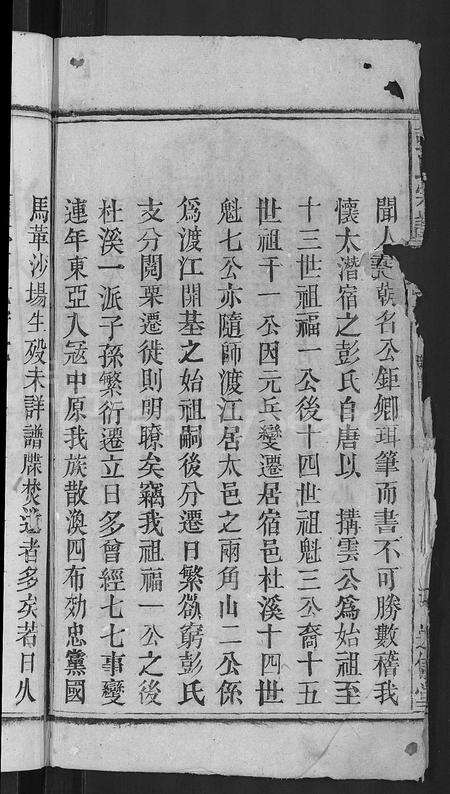 聞人歷朝名公鉅卿珥筆而書不可勝數稽我
懷太潛宿之彭氏自唐以 搆雲公爲始祖至
十三世祖福一公後十四世祖魁三公裔十五
世祖千一公因元兵變遷居宿邑杜溪十四世
魁七公亦隨師渡江居太邑之兩角山二公係
爲渡江開基之始祖嗣後分遷日繁欲窮彭氏
支分閱栗遷徙則明瞭矣竊我祖福一公之後
杜溪一派子孫繁衍遷立日多曾經七七事變
連年東亞人冦中原我族散渙四布効忠黨國
馬革沙場生殁未詳譜牒焚遺者多矣若日久